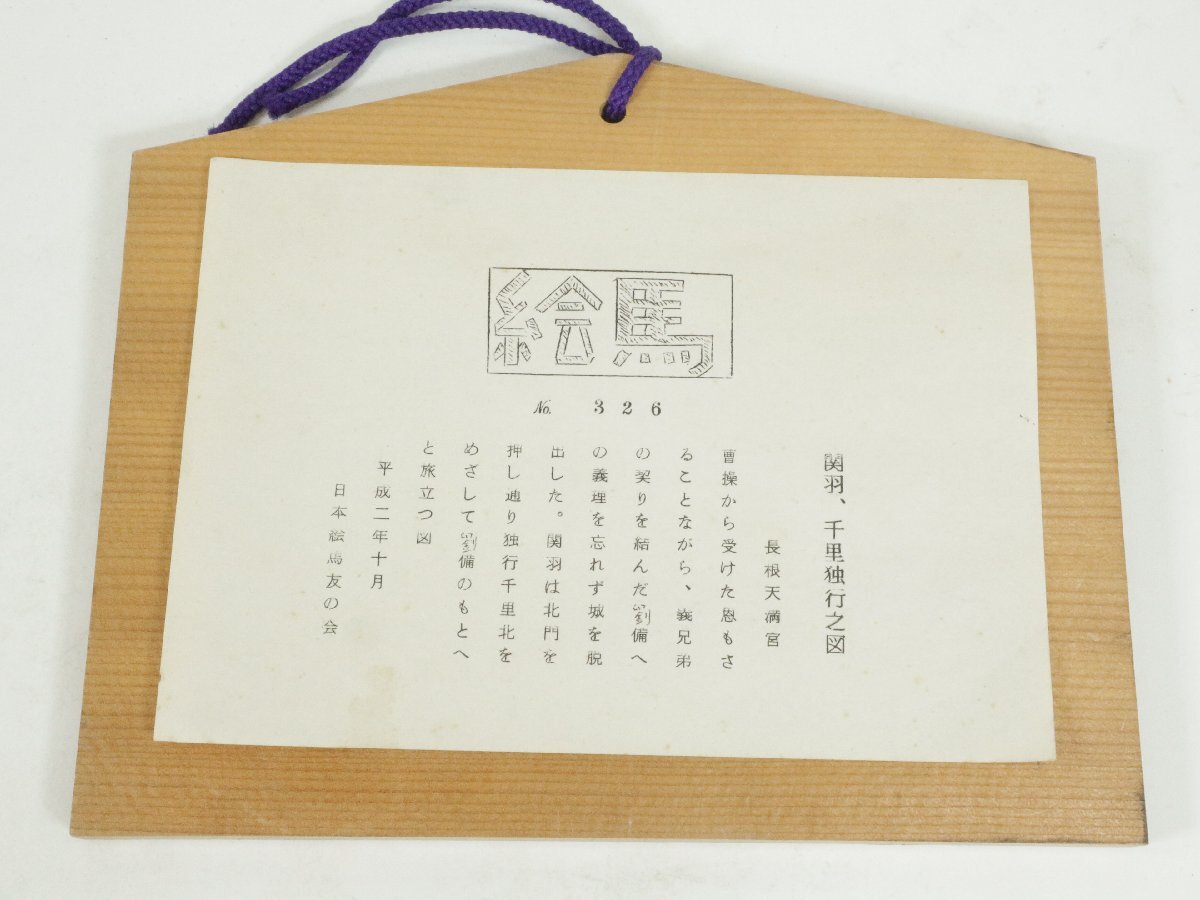 絵馬
No. 326
関羽、千里独行之図
長根天満宮
曹操から受けた恩もさ
ることながら、義兄弟
の契りを結んだ劉備へ
の義理を忘れず城を脱
出した。関羽は北門を
押し通り独行千里北を
めざして劉備のもとへ
と旅立つ図
平成二年十月
日本絵馬友の会